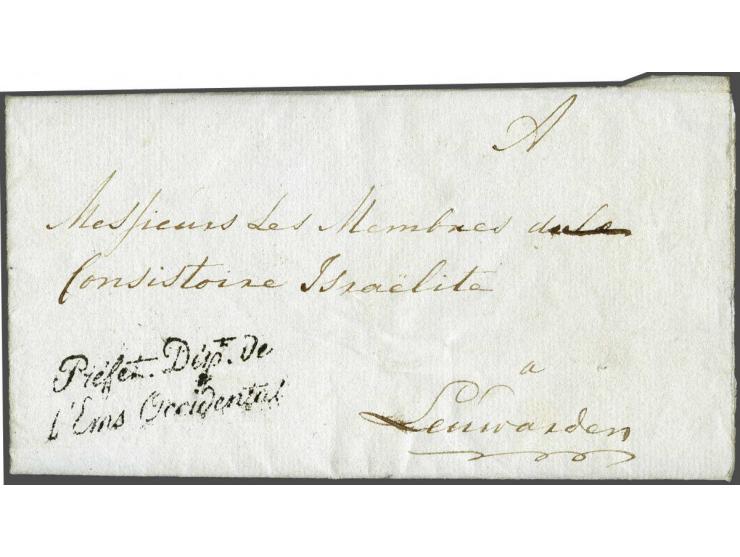 A
Messieurs Les Membres du
Consistoire Israëlite
a
Leuwarden
Préfet. Dépt. de
l'Ems Occidental